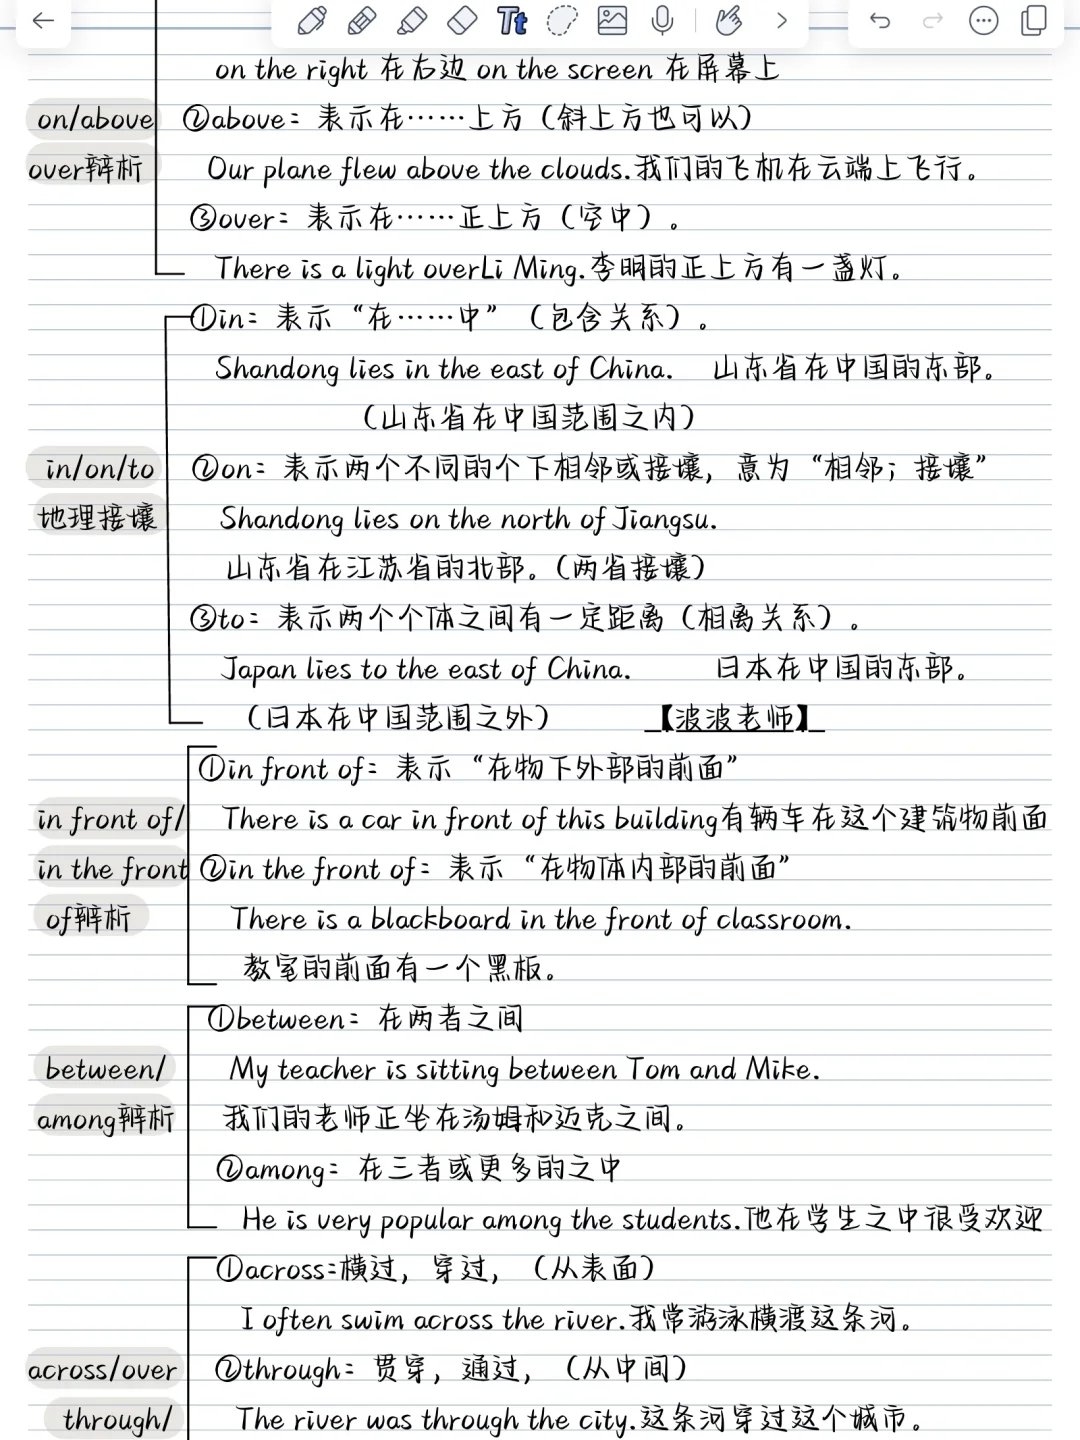 Tt
on the right 在右边 on the screen 在屏幕上
on/above
over辩析
②above：表示在……上方（斜上方也可以）
Our plane flew above the clouds.我们的飞机在云端上飞行。
③over：表示在……正上方（空中）。
There is a light overLi Ming.李明的正上方有一盏灯。
in/on/to
地理接壤
①in：表示“在……中”（包含关系）。
Shandong lies in the east of China. 山东省在中国的东部。
（山东省在中国范围之内）
②on：表示两个不同的个下相邻或接壤，意为“相邻；接壤”
Shandong lies on the north of Jiangsu.
山东省在江苏省的北部。（两省接壤）
③to：表示两个个体之间有一定距离（相离关系）。
Japan lies to the east of China. 日本在中国的东部。
（日本在中国范围之外） 【波波老师】
in front of/
in the front
of辩析
①in front of：表示“在物下外部的前面”
There is a car in front of this building有辆车在这个建筑物前面
②in the front of：表示“在物体内部的前面”
There is a blackboard in the front of classroom.
教室的前面有一个黑板。
between/
among辩析
①between：在两者之间
My teacher is sitting between Tom and Mike.
我们的老师正坐在汤姆和迈克之间。
②among：在三者或更多的之中
He is very popular among the students.他在学生之中很受欢迎
across/over
through/
①across:横过，穿过，（从表面）
I often swim across the river.我常游泳横渡这条河。
②through：贯穿，通过，（从中间）
The river was through the city.这条河穿过这个城市。